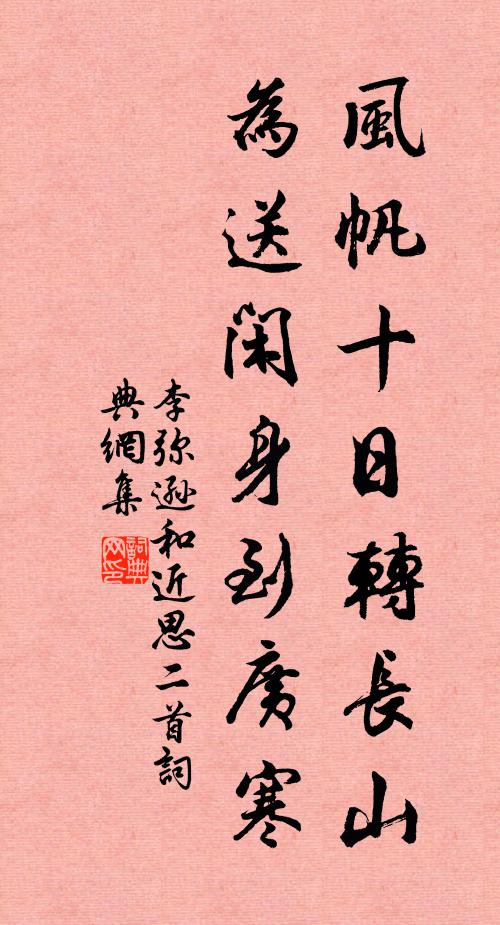 風帆十日轉長山
為送閑身到廣寒
李弥遜和近思二首詞
典網集
詞典
网印